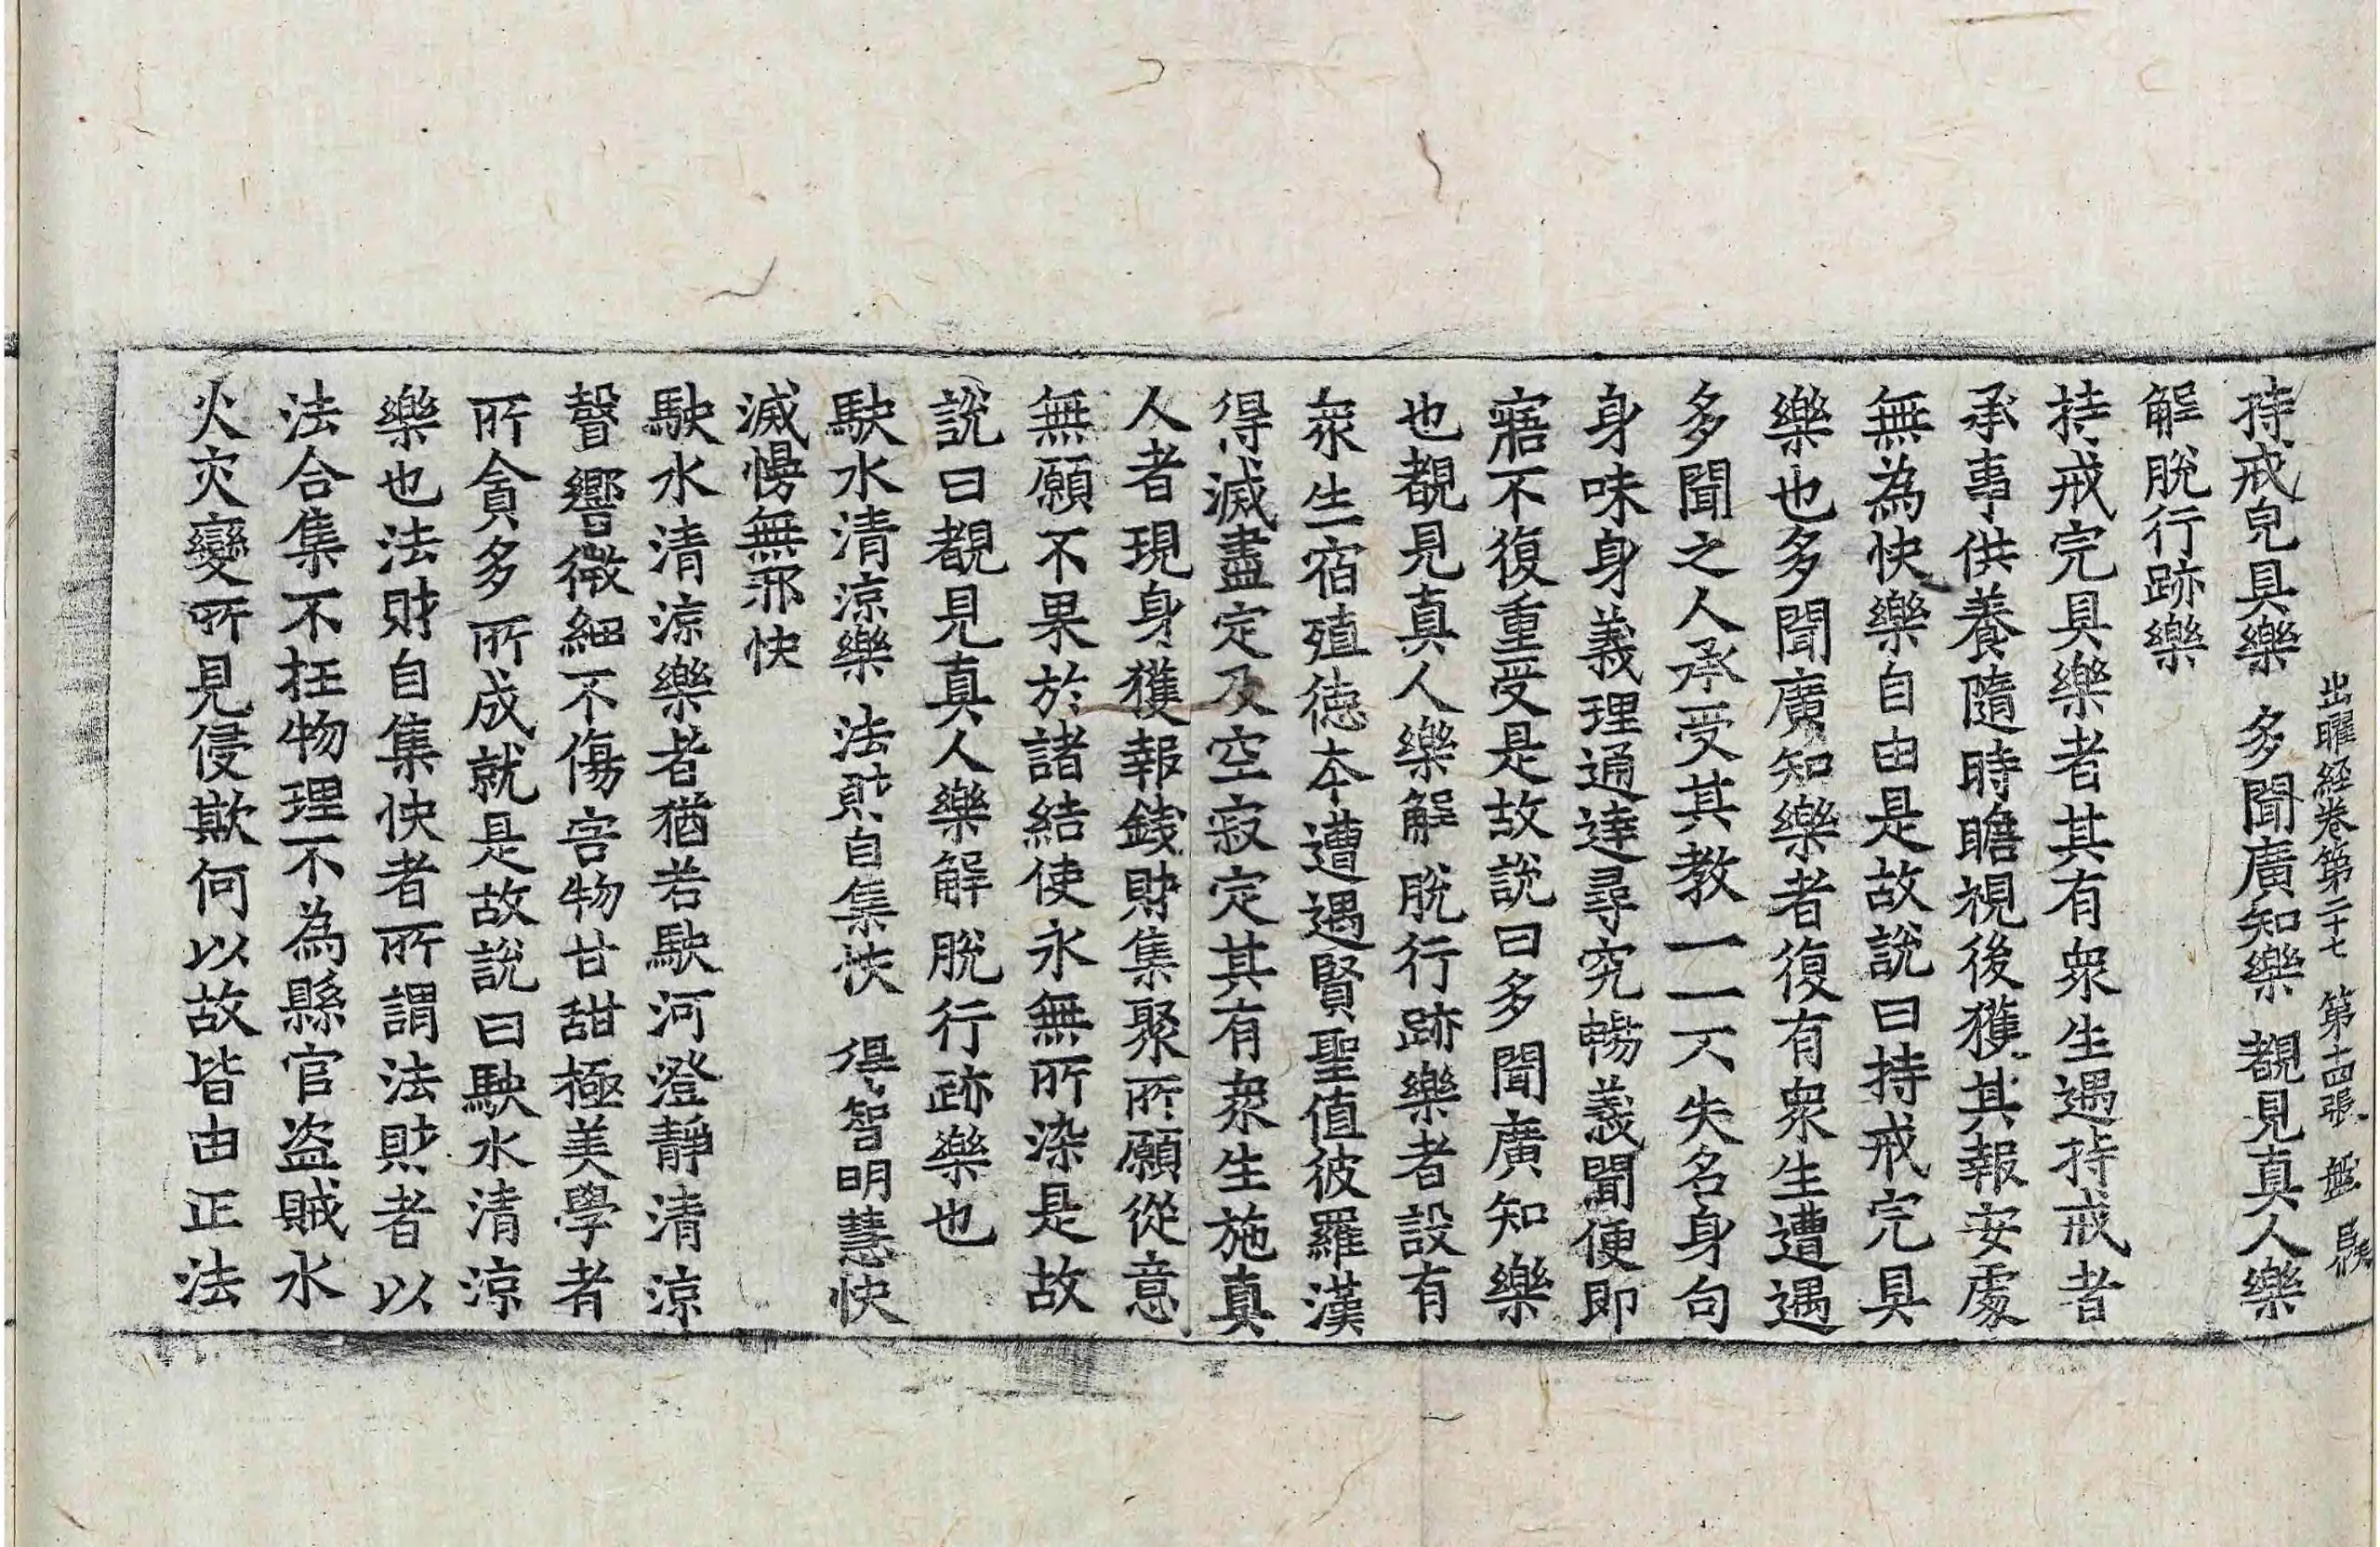 出曜經卷第二十七 第十四張 盤
持戒皃具樂 多聞廣知樂 覩見真人樂
解脫行跡樂
持戒完具樂者其有衆生遇持戒者
承事供養隨時瞻視後獲其報安處
無為快樂自由是故說曰持戒完具
樂也多聞廣知樂者復有衆生遭遇
多聞之人承受其教一一不失名身句
身味身義理通達尋究暢義聞便即
寤不復重受是故說曰多聞廣知樂
也覩見真人樂解脫行跡樂者設有
衆生宿殖德本遭遇賢聖值彼羅漢
得滅盡定及空寂定其有衆生施真
人者現身獲報錢財集聚所願從意
無願不果於諸結使永無所染是故
說曰覩見真人樂解脫行跡樂也
駛水清涼樂 法財自集快 得智明慧快
滅慢無邪快
駛水清涼樂者猶若駛河澄靜清涼
聲響微細不傷害物甘甜極美學者
所貪多所成就是故說曰駛水清涼
樂也法財自集快者所謂法財者以
法合集不抂物理不為縣官盜賊水
火灾變所見侵欺何以故皆由正法